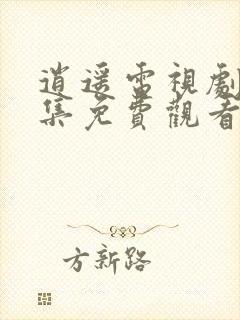 逍遥電視劇
集免費觀看
方新路